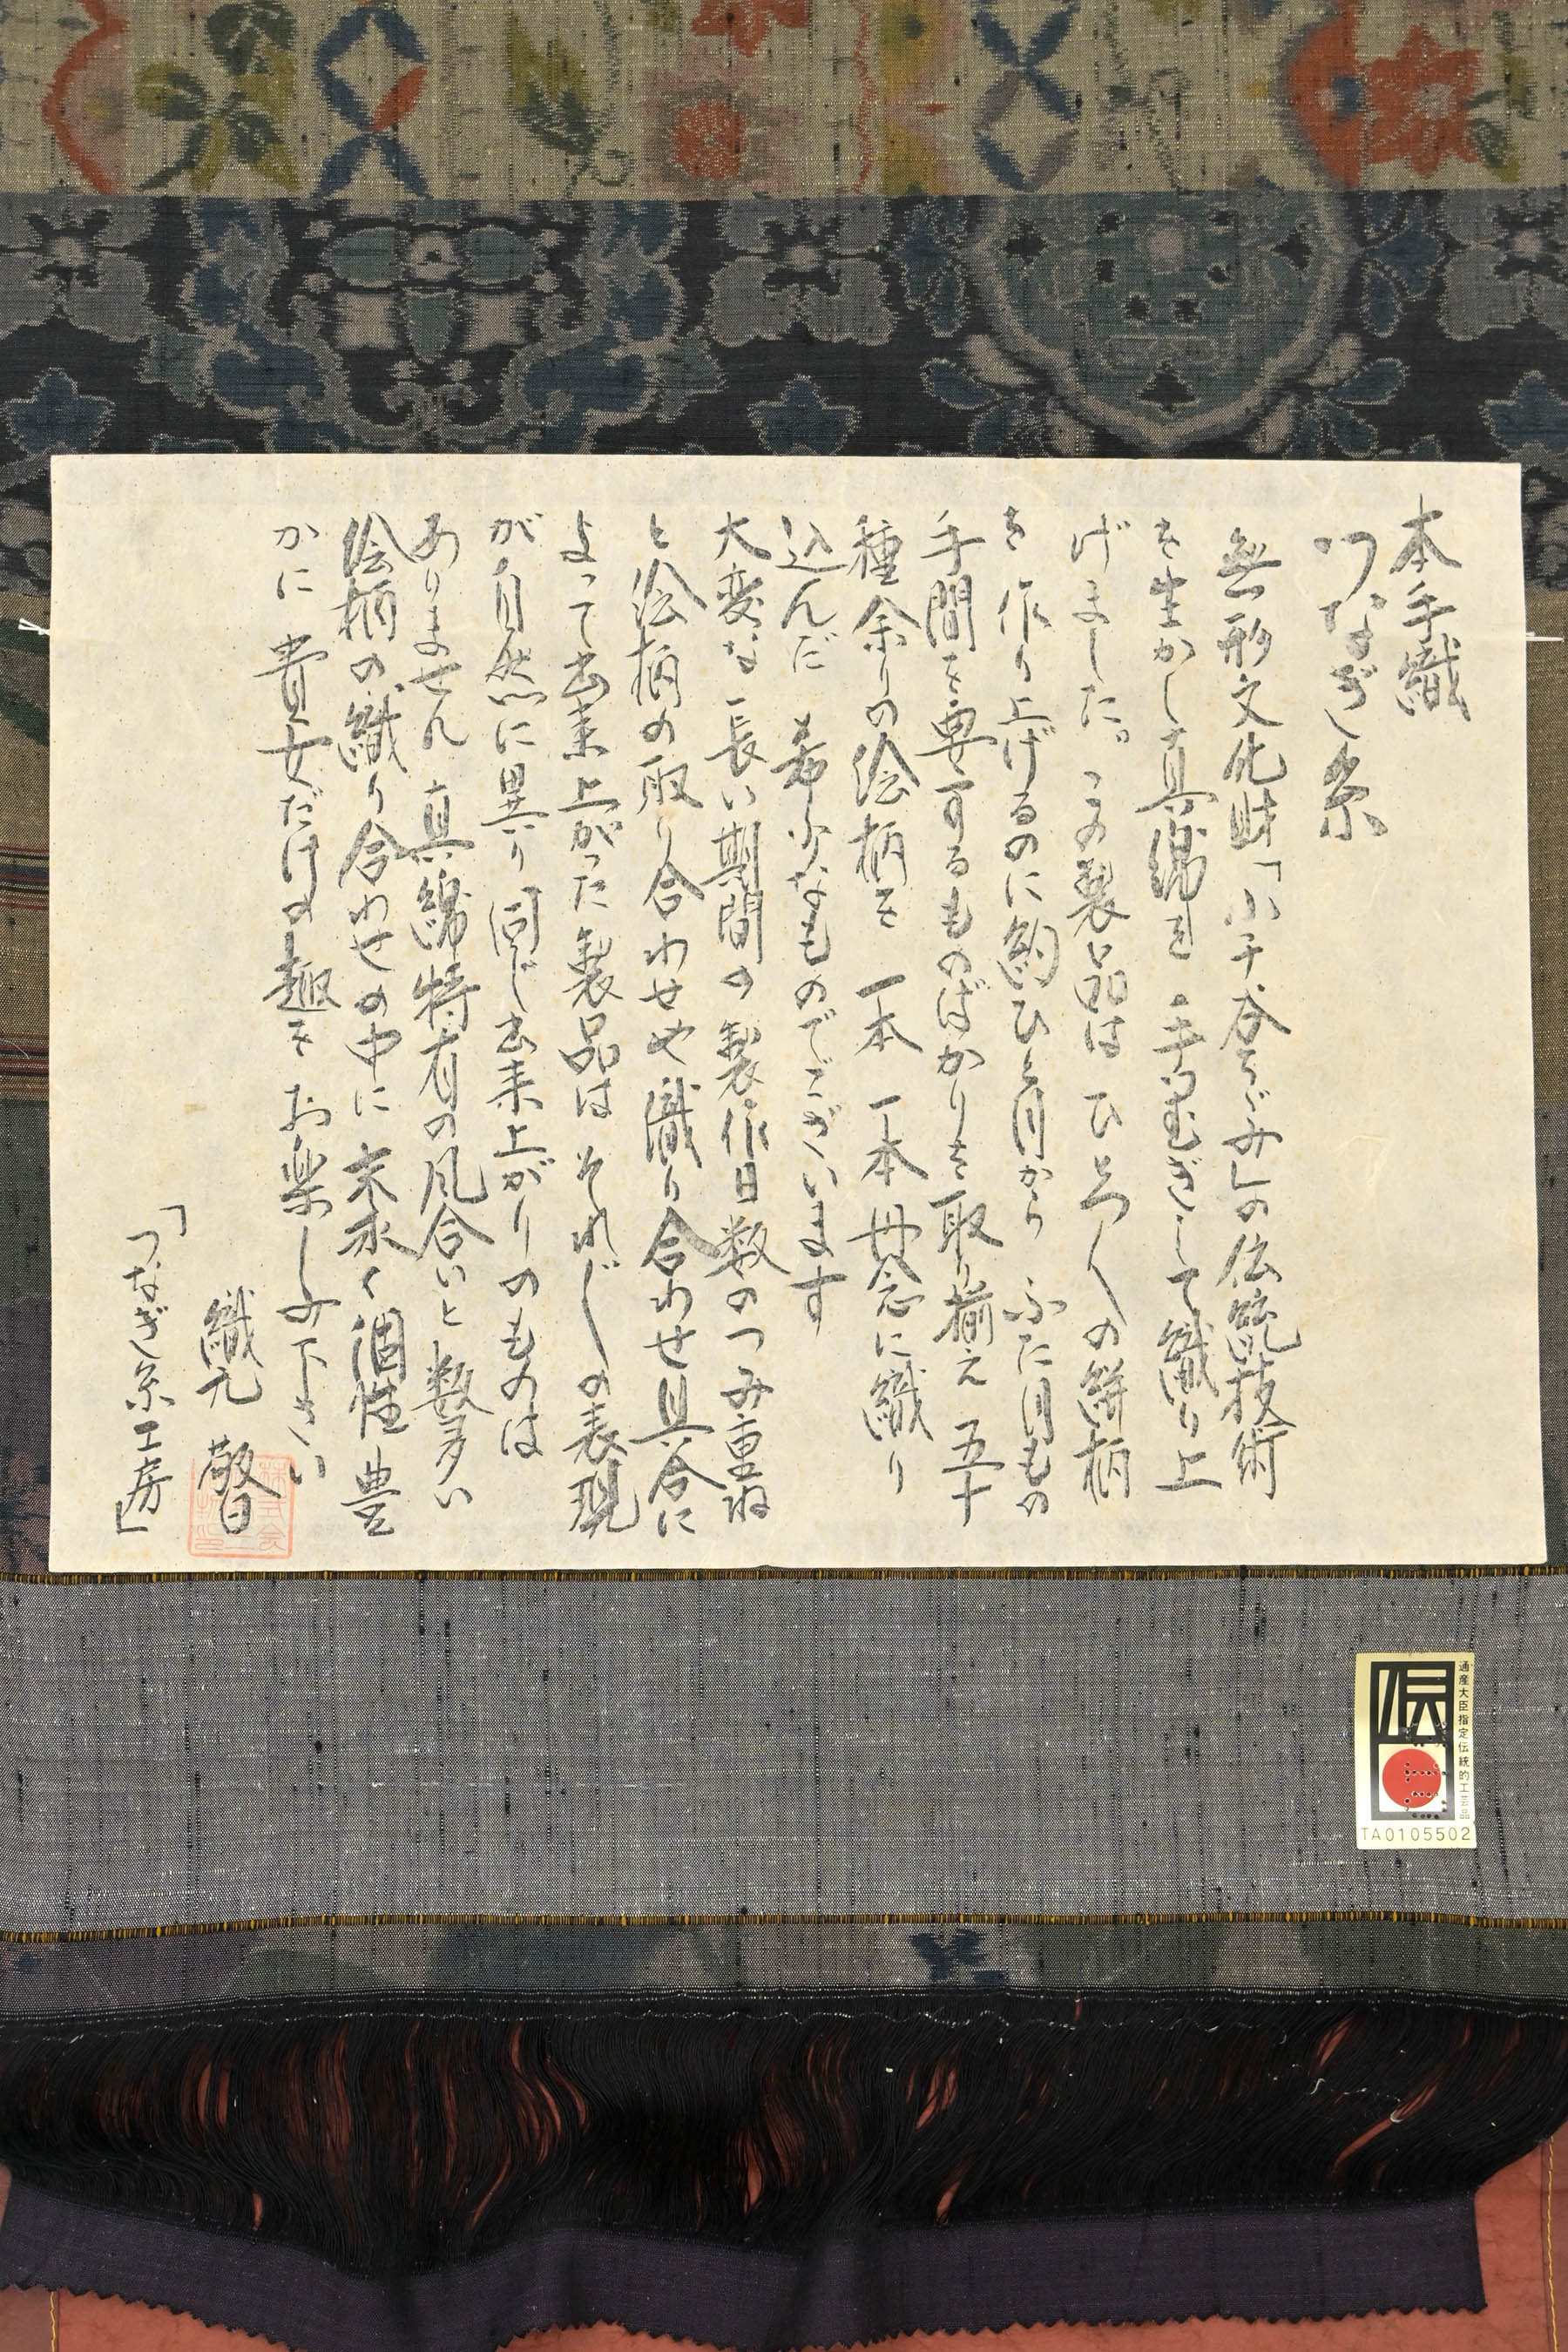 本手織
つなぎ糸
無形文化財「小千谷ちゞみ」の伝統技術
を生かし真綿を手つむぎして織り上
げました。この製品は ひとつ〱の絣柄
を作り上げるのに約ひと月から ふた月もの
手間を要するものばかりを取り揃え 五十
種余りの絵柄を 一本 一本 丹念に織り
込んだ 希少なものでございます
大変な長い期間の製作日数のつみ重ね
と絵柄の取り合わせや織り合わせ具合に
よって出来上がった製品は それ〲の表現
が自然に異り 同じ出来上がりのものは
ありません 真綿特有の風合いと数多い
絵柄の織り合わせの中に 末永く 個性 豊
かに 貴女だけの趣を お楽しみ下さい
織元 敬白
「つなぎ糸工房」
通産大臣指定伝統的工芸品
伝
TA0105502